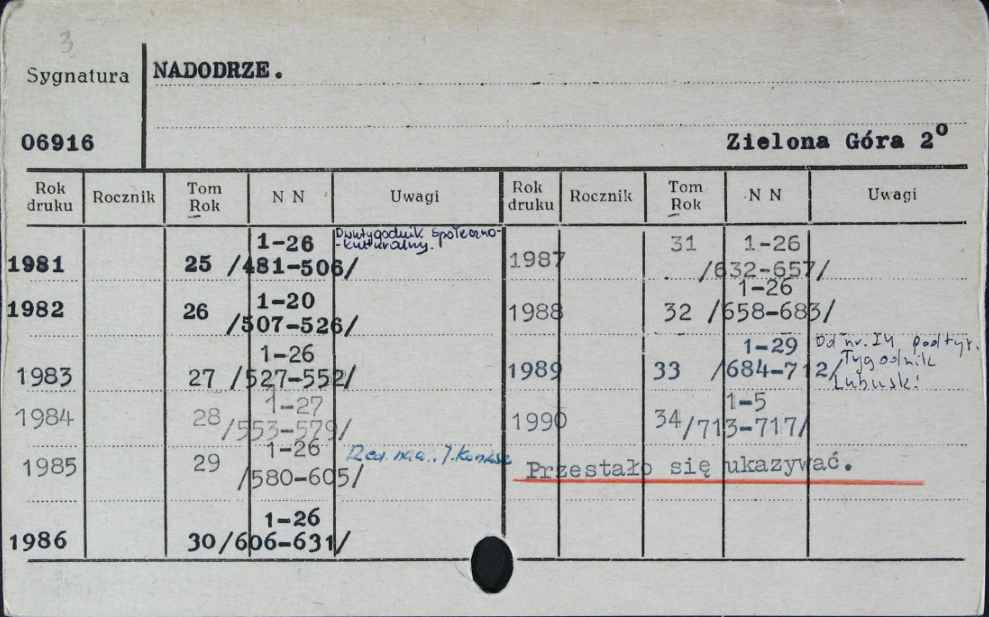 3
Sygnatura NADODRZE.
06916 Zielona Góra 2º
Rok druku Rocznik Tom Rok N N Uwagi Rok druku Rocznik Tom Rok N N Uwagi
1981 25 1-26 /481-506/ Dwutygodnik społeczno-kulturalny.
1982 26 1-20 /507-526/
1983 27 1-26 /527-552/
1984 28 1-27 /553-579/
1985 29 1-26 /580-605/
1986 30 1-26 /606-631/
1987 31 1-26 /632-657/
1988 32 1-26 /658-683/
1989 33 1-29 /684-712/ Od nr. 14 podtyt. Tygodnik Lubuski
1990 34 1-5 /713-717/
Przestało się ukazywać.